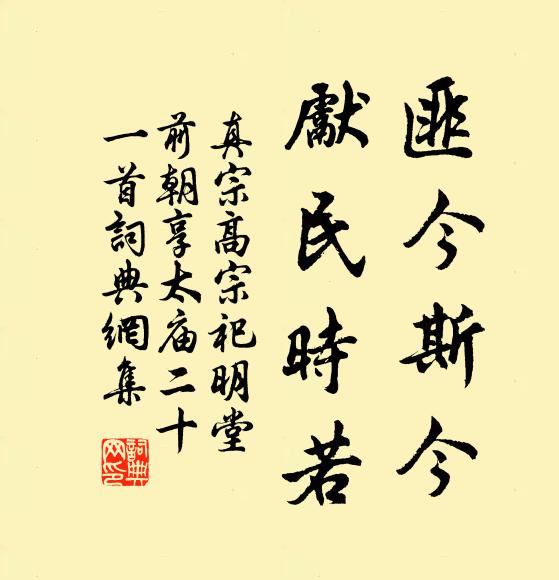 匪今斯今
獻民時若
真宗高宗祀明堂
前朝享太庙二十
一首詞典網集